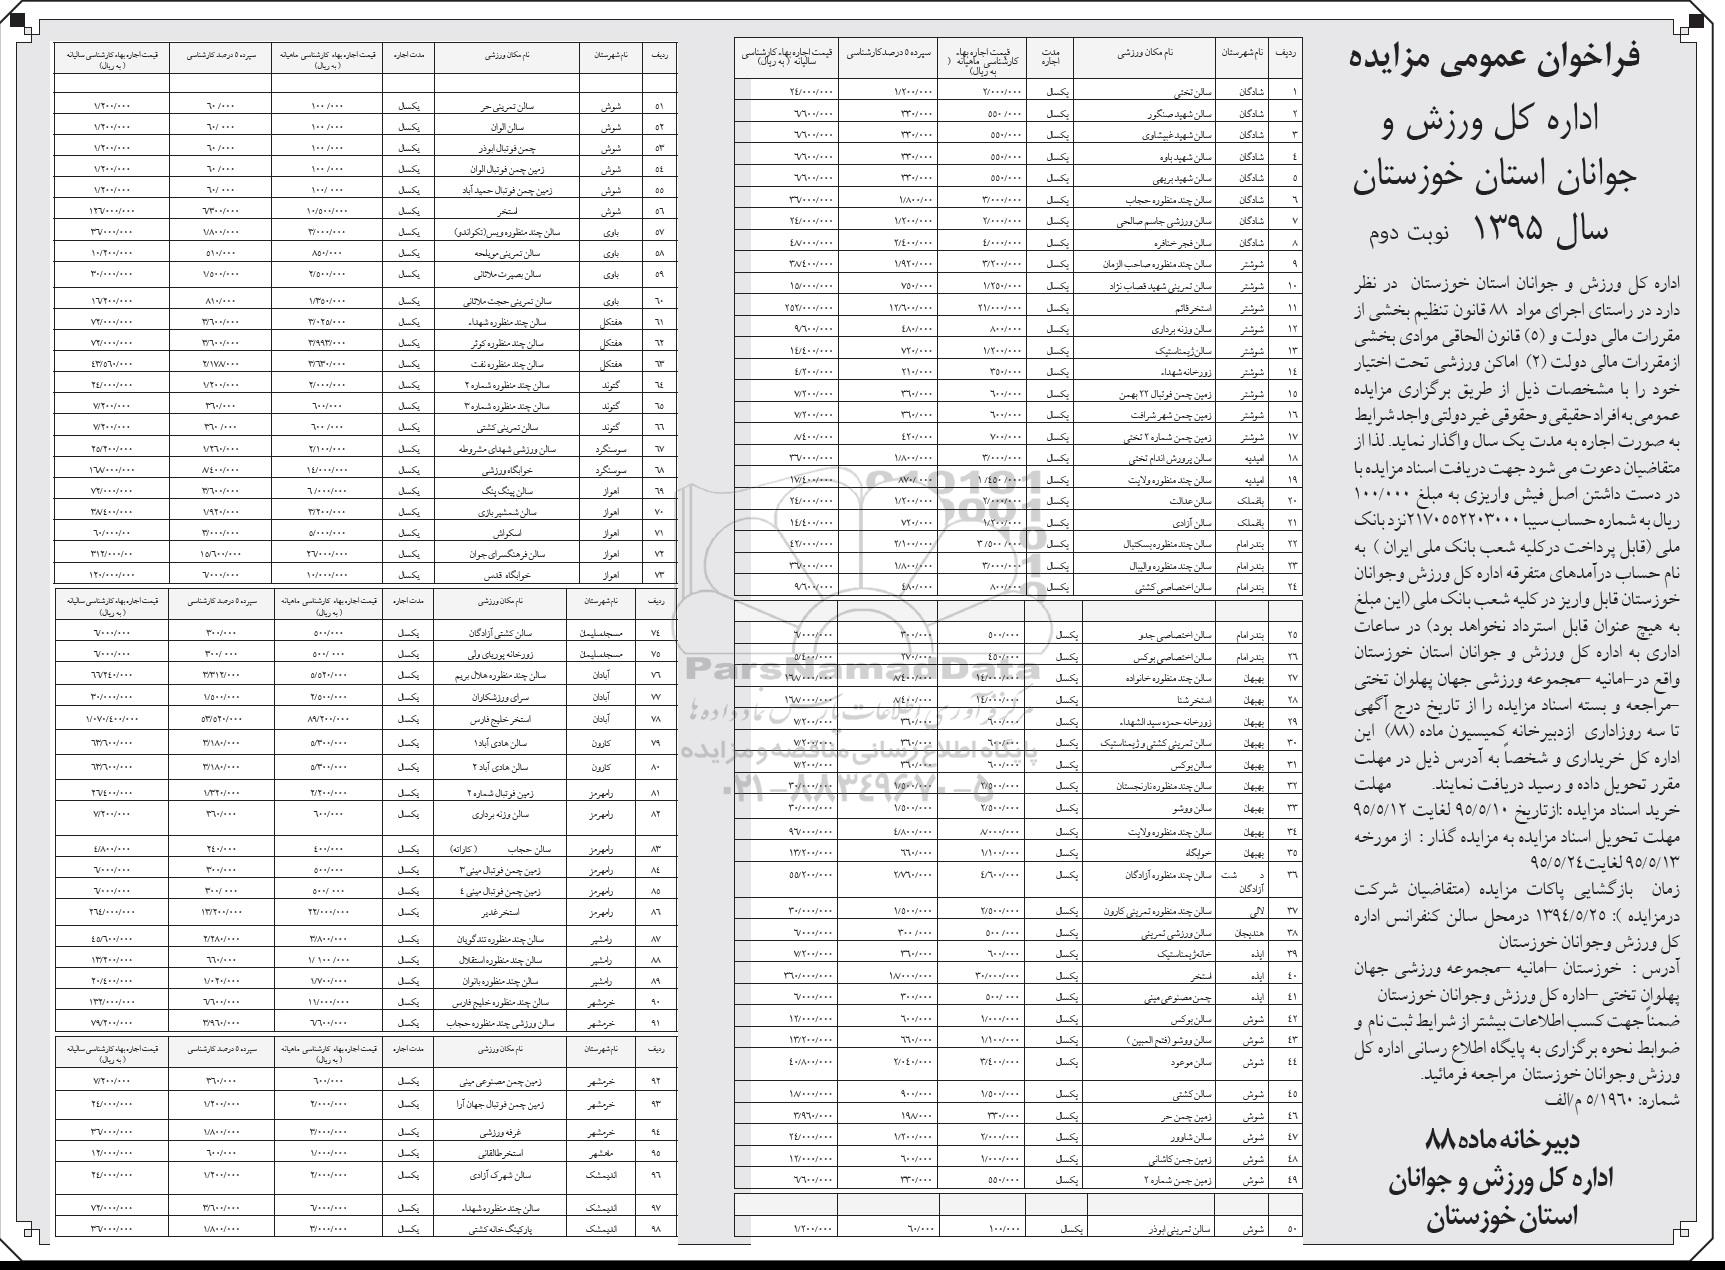 فراخوان عمومی مزایده
اداره کل ورزش و
جوانان استان خوزستان
سال ۱۳۹۵ نوبت دوم
اداره کل ورزش و جوانان استان خوزستان در نظر
دارد در راستای اجرای مواد ۸۸ قانون تنظیم بخشی از
مقررات مالی دولت و (۵) قانون الحاقی موادی بخشی
ازمقررات مالی دولت (۲) اماکن ورزشی تحت اختیار
خود را با مشخصات ذیل از طریق برگزاری مزایده
عمومی به افراد حقیقی و حقوقی غیر دولتی واجد شرایط
به صورت اجاره به مدت یک سال واگذار نماید. لذا از
متقاضیان دعوت می شود جهت دریافت اسناد مزایده با
در دست داشتن اصل فیش واریزی به مبلغ ۱۰۰/۰۰۰
ریال به شماره حساب سیبا ۲۱۷۰۵۵۲۲۰۳۰۰۰ نزد بانک
ملی (قابل پرداخت درکلیه شعب بانک ملی ایران ) به
نام حساب درآمدهای متفرقه اداره کل ورزش وجوانان
خوزستان قابل واریز در کلیه شعب بانک ملی (این مبلغ
به هیچ عنوان قابل استرداد نخواهد بود) در ساعات
اداری به اداره کل ورزش و جوانان استان خوزستان
واقع در–امانیه –مجموعه ورزشی جهان پهلوان تختی
–مراجعه و بسته اسناد مزایده را از تاریخ درج آگهی
تا سه روزاداری ازدبیرخانه کمیسیون ماده (۸۸) این
اداره کل خریداری و شخصاً به آدرس ذیل در مهلت
مقرر تحویل داده و رسید دریافت نمایند. مهلت
خرید اسناد مزایده :ازتاریخ ۹۵/۵/۱۰ لغایت ۹۵/۵/۱۲
مهلت تحویل اسناد مزایده به مزایده گذار : از مورخه
۹۵/۵/۱۳ لغایت ۹۵/۵/۲۴
زمان بازگشایی پاکات مزایده (متقاضیان شرکت
درمزایده ): ۱۳۹۴/۵/۲۵ درمحل سالن کنفرانس اداره
کل ورزش وجوانان خوزستان
آدرس : خوزستان –امانیه –مجموعه ورزشی جهان
پهلوان تختی –اداره کل ورزش وجوانان خوزستان
ضمناً جهت کسب اطلاعات بیشتر از شرایط ثبت نام و
ضوابط نحوه برگزاری به پایگاه اطلاع رسانی اداره کل
ورزش وجوانان خوزستان مراجعه فرمائید.
شماره: ۵/۱۹۶۰ م/الف
دبیرخانه ماده ۸۸
اداره کل ورزش و جوانان
استان خوزستان
ردیف نام شهرستان نام مکان ورزشی مدت اجاره قیمت اجاره بهاء کارشناسی ماهیانه ( به ریال) سپرده ۵ درصدکارشناسی قیمت اجاره بهاء کارشناسی سالیانه ( به ریال)
۱ شادگان سالن تختی یکسال ۲/۰۰۰/۰۰۰ ۱/۲۰۰/۰۰۰ ۲۴/۰۰۰/۰۰۰
۲ شادگان سالن شهید صنگور یکسال ۵۵۰/۰۰۰ ۳۳۰/۰۰۰ ۶/۶۰۰/۰۰۰
۳ شادگان سالن شهید غبیشاوی یکسال ۵۵۰/۰۰۰ ۳۳۰/۰۰۰ ۶/۶۰۰/۰۰۰
۴ شادگان سالن شهید باوه یکسال ۵۵۰/۰۰۰ ۳۳۰/۰۰۰ ۶/۶۰۰/۰۰۰
۵ شادگان سالن شهید بریهی یکسال ۵۵۰/۰۰۰ ۳۳۰/۰۰۰ ۶/۶۰۰/۰۰۰
۶ شادگان سالن چند منظوره حجاب یکسال ۳/۰۰۰/۰۰۰ ۱/۸۰۰/۰۰ ۳۶/۰۰۰/۰۰۰
۷ شادگان سالن ورزشی جاسم صالحی یکسال ۲/۰۰۰/۰۰۰ ۱/۲۰۰/۰۰۰ ۲۴/۰۰۰/۰۰۰
۸ شادگان سالن فجر خنافره یکسال ۴/۰۰۰/۰۰۰ ۲/۴۰۰/۰۰۰ ۴۸/۰۰۰/۰۰۰
۹ شوشتر سالن چند منظوره صاحب الزمان یکسال ۳/۲۰۰/۰۰۰ ۱/۹۲۰/۰۰۰ ۳۸/۴۰۰/۰۰۰
۱۰ شوشتر سالن تمرینی شهید قصاب نژاد یکسال ۱/۲۵۰/۰۰۰ ۷۵۰/۰۰۰ ۱۵/۰۰۰/۰۰۰
۱۱ شوشتر استخر قائم یکسال ۲۱/۰۰۰/۰۰۰ ۱۲/۶۰۰/۰۰۰ ۲۵۲/۰۰۰/۰۰۰
۱۲ شوشتر سالن وزنه برداری یکسال ۸۰۰/۰۰۰ ۴۸۰/۰۰۰ ۹/۶۰۰/۰۰۰
۱۳ شوشتر سالن ژیمناستیک یکسال ۱/۲۰۰/۰۰۰ ۷۲۰/۰۰۰ ۱۴/۴۰۰/۰۰۰
۱۴ شوشتر زورخانه شهداء یکسال ۳۵۰/۰۰۰ ۲۱۰/۰۰۰ ۴/۲۰۰/۰۰۰
۱۵ شوشتر زمین چمن فوتبال ۲۲ بهمن یکسال ۶۰۰/۰۰۰ ۳۶۰/۰۰۰ ۷/۲۰۰/۰۰۰
۱۶ شوشتر زمین چمن شهر شرافت یکسال ۶۰۰/۰۰۰ ۳۶۰/۰۰۰ ۷/۲۰۰/۰۰۰
۱۷ شوشتر زمین چمن شماره ۲ تختی یکسال ۷۰۰/۰۰۰ ۴۲۰/۰۰۰ ۸/۴۰۰/۰۰۰
۱۸ امیدیه سالن پرورش اندام تختی یکسال ۳/۰۰۰/۰۰۰ ۱/۸۰۰/۰۰۰ ۳۶/۰۰۰/۰۰۰
۱۹ امیدیه سالن چند منظوره ولایت یکسال ۱/۴۵۰/۰۰۰ ۸۷۰/۰۰۰ ۱۷/۴۰۰/۰۰۰
۲۰ باغملک سالن عدالت یکسال ۲/۰۰۰/۰۰۰ ۱/۲۰۰/۰۰۰ ۲۴/۰۰۰/۰۰۰
۲۱ باغملک سالن آزادی یکسال ۱/۲۰۰/۰۰۰ ۷۲۰/۰۰۰ ۱۴/۴۰۰/۰۰۰
۲۲ بندر امام سالن چند منظوره بسکتبال یکسال ۳/۵۰۰/۰۰۰ ۲/۱۰۰/۰۰۰ ۴۲/۰۰۰/۰۰۰
۲۳ بندر امام سالن چند منظوره والیبال یکسال ۳/۰۰۰/۰۰۰ ۱/۸۰۰/۰۰۰ ۳۶/۰۰۰/۰۰۰
۲۴ بندر امام سالن اختصاصی کشتی یکسال ۸۰۰/۰۰۰ ۴۸۰/۰۰۰ ۹/۶۰۰/۰۰۰
۲۵ بندر امام سالن اختصاصی جدو یکسال ۵۰۰/۰۰۰ ۳۰۰/۰۰۰ ۶/۰۰۰/۰۰۰
۲۶ بندر امام سالن اختصاصی بوکس یکسال ۴۵۰/۰۰۰ ۲۷۰/۰۰۰ ۵/۴۰۰/۰۰۰
۲۷ بهبهان سالن چند منظوره خانواده یکسال ۱۴/۰۰۰/۰۰۰ ۸/۴۰۰/۰۰۰ ۱۶۸/۰۰۰/۰۰۰
۲۸ بهبهان استخر شنا یکسال ۱۴/۰۰۰/۰۰۰ ۸/۴۰۰/۰۰۰ ۱۶۸/۰۰۰/۰۰۰
۲۹ بهبهان زورخانه حمزه سید الشهداء یکسال ۶۰۰/۰۰۰ ۳۶۰/۰۰۰ ۷/۲۰۰/۰۰۰
۳۰ بهبهان سالن تمرینی کشتی و ژیمناستیک یکسال ۶۰۰/۰۰۰ ۳۶۰/۰۰۰ ۷/۲۰۰/۰۰۰
۳۱ بهبهان سالن بوکس یکسال ۶۰۰/۰۰۰ ۳۶۰/۰۰۰ ۷/۲۰۰/۰۰۰
۳۲ بهبهان سالن چند منظوره نارنجستان یکسال ۲/۵۰۰/۰۰۰ ۱/۵۰۰/۰۰۰ ۳۰/۰۰۰/۰۰۰
۳۳ بهبهان سالن ووشو یکسال ۲/۵۰۰/۰۰۰ ۱/۵۰۰/۰۰۰ ۳۰/۰۰۰/۰۰۰
۳۴ بهبهان سالن چند منظوره ولایت یکسال ۸/۰۰۰/۰۰۰ ۴/۸۰۰/۰۰۰ ۹۶/۰۰۰/۰۰۰
۳۵ بهبهان خوابگاه یکسال ۱/۱۰۰/۰۰۰ ۶۶۰/۰۰۰ ۱۳/۲۰۰/۰۰۰
۳۶ د شت آزادگان سالن چند منظوره آزادگان یکسال ۴/۶۰۰/۰۰۰ ۲/۷۶۰/۰۰۰ ۵۵/۲۰۰/۰۰۰
۳۷ لالی سالن چند منظوره تمرینی کارون یکسال ۲/۵۰۰/۰۰۰ ۱/۵۰۰/۰۰۰ ۳۰/۰۰۰/۰۰۰
۳۸ هندیجان سالن ورزشی تمرینی یکسال ۵۰۰/۰۰۰ ۳۰۰/۰۰۰ ۶/۰۰۰/۰۰۰
۳۹ ایذه خانه ژیمناستیک یکسال ۶۰۰/۰۰۰ ۳۶۰/۰۰۰ ۷/۲۰۰/۰۰۰
۴۰ ایذه استخر یکسال ۳۰/۰۰۰/۰۰۰ ۱۸/۰۰۰/۰۰۰ ۳۶۰/۰۰۰/۰۰۰
۴۱ ایذه چمن مصنوعی مینی یکسال ۵۰۰/۰۰۰ ۳۰۰/۰۰۰ ۶/۰۰۰/۰۰۰
۴۲ شوش سالن بوکس یکسال ۱/۰۰۰/۰۰۰ ۶۰۰/۰۰۰ ۱۲/۰۰۰/۰۰۰
۴۳ شوش سالن ووشو (فتح المبین ) یکسال ۱/۱۰۰/۰۰۰ ۶۶۰/۰۰۰ ۱۳/۲۰۰/۰۰۰
۴۴ شوش سالن موعود یکسال ۳/۴۰۰/۰۰۰ ۲/۰۴۰/۰۰۰ ۴۰/۸۰۰/۰۰۰
۴۵ شوش سالن کشتی یکسال ۱/۵۰۰/۰۰۰ ۹۰۰/۰۰۰ ۱۸/۰۰۰/۰۰۰
۴۶ شوش زمین چمن حر یکسال ۳۳۰/۰۰۰ ۱۹۸/۰۰۰ ۳/۹۶۰/۰۰۰
۴۷ شوش سالن شاوور یکسال ۲/۰۰۰/۰۰۰ ۱/۲۰۰/۰۰۰ ۲۴/۰۰۰/۰۰۰
۴۸ شوش زمین چمن کاشانی یکسال ۱/۰۰۰/۰۰۰ ۶۰۰/۰۰۰ ۱۲/۰۰۰/۰۰۰
۴۹ شوش زمین چمن شماره ۲ یکسال ۵۵۰/۰۰۰ ۳۳۰/۰۰۰ ۶/۶۰۰/۰۰۰
۵۰ شوش سالن تمرینی ابوذر یکسال ۱۰۰/۰۰۰ ۶۰/۰۰۰ ۱/۲۰۰/۰۰۰
ردیف نام شهرستان نام مکان ورزشی مدت اجاره قیمت اجاره بهاء کارشناسی ماهیانه ( به ریال) سپرده ۵ درصد کارشناسی قیمت اجاره بهاء کارشناسی سالیانه ( به ریال)
۵۱ شوش سالن تمرینی حر یکسال ۱۰۰/۰۰۰ ۶۰/۰۰۰ ۱/۲۰۰/۰۰۰
۵۲ شوش سالن الوان یکسال ۱۰۰/۰۰۰ ۶۰/۰۰۰ ۱/۲۰۰/۰۰۰
۵۳ شوش چمن فوتبال ابوذر یکسال ۱۰۰/۰۰۰ ۶۰/۰۰۰ ۱/۲۰۰/۰۰۰
۵۴ شوش زمین چمن فوتبال الوان یکسال ۱۰۰/۰۰۰ ۶۰/۰۰۰ ۱/۲۰۰/۰۰۰
۵۵ شوش زمین چمن فوتبال حمید آباد یکسال ۱۰۰/۰۰۰ ۶۰/۰۰۰ ۱/۲۰۰/۰۰۰
۵۶ شوش استخر یکسال ۱۰/۵۰۰/۰۰۰ ۶/۳۰۰/۰۰۰ ۱۲۶/۰۰۰/۰۰۰
۵۷ باوی سالن چند منظوره ویس(تکواندو) یکسال ۳/۰۰۰/۰۰۰ ۱/۸۰۰/۰۰۰ ۳۶/۰۰۰/۰۰۰
۵۸ باوی سالن تمرینی مویلحه یکسال ۸۵۰/۰۰۰ ۵۱۰/۰۰۰ ۱۰/۲۰۰/۰۰۰
۵۹ باوی سالن بصیرت ملاثانی یکسال ۲/۵۰۰/۰۰۰ ۱/۵۰۰/۰۰۰ ۳۰/۰۰۰/۰۰۰
۶۰ باوی سالن تمرینی حجت ملاثانی یکسال ۱/۳۵۰/۰۰۰ ۸۱۰/۰۰۰ ۱۶/۲۰۰/۰۰۰
۶۱ هفتکل سالن چند منظوره شهداء یکسال ۳/۰۲۵/۰۰۰ ۳/۶۰۰/۰۰۰ ۷۲/۰۰۰/۰۰۰
۶۲ هفتکل سالن چند منظوره کوثر یکسال ۳/۹۹۳/۰۰۰ ۳/۶۰۰/۰۰۰ ۷۲/۰۰۰/۰۰۰
۶۳ هفتکل سالن چند منظوره نفت یکسال ۳/۶۳۰/۰۰۰ ۲/۱۷۸/۰۰۰ ۴۳/۵۶۰/۰۰۰
۶۴ گتوند سالن چند منظوره شماره ۲ یکسال ۲/۰۰۰/۰۰۰ ۱/۲۰۰/۰۰۰ ۲۴/۰۰۰/۰۰۰
۶۵ گتوند سالن چند منظوره شماره ۳ یکسال ۶۰۰/۰۰۰ ۳۶۰/۰۰۰ ۷/۲۰۰/۰۰۰
۶۶ گتوند سالن تمرینی کشتی یکسال ۶۰۰/۰۰۰ ۳۶۰/۰۰۰ ۷/۲۰۰/۰۰۰
۶۷ سوسنگرد سالن ورزشی شهدای مشروطه یکسال ۲/۱۰۰/۰۰۰ ۱/۲۶۰/۰۰۰ ۲۵/۲۰۰/۰۰۰
۶۸ سوسنگرد خوابگاه ورزشی یکسال ۱۴/۰۰۰/۰۰۰ ۸/۴۰۰/۰۰۰ ۱۶۸/۰۰۰/۰۰۰
۶۹ اهواز سالن پینگ پنگ یکسال ۶/۰۰۰/۰۰۰ ۳/۶۰۰/۰۰۰ ۷۲/۰۰۰/۰۰۰
۷۰ اهواز سالن شمشیر بازی یکسال ۳/۲۰۰/۰۰۰ ۱/۹۲۰/۰۰۰ ۳۸/۴۰۰/۰۰۰
۷۱ اهواز اسکواش یکسال ۵/۰۰۰/۰۰۰ ۳/۰۰۰/۰۰۰ ۶۰/۰۰۰/۰۰
۷۲ اهواز سالن فرهنگسرای جوان یکسال ۲۶/۰۰۰/۰۰۰ ۱۵/۶۰۰/۰۰۰ ۳۱۲/۰۰۰/۰۰
۷۳ اهواز خوابگاه قدس یکسال ۱۰/۰۰۰/۰۰۰ ۶/۰۰۰/۰۰۰ ۱۲۰/۰۰۰/۰۰۰
ردیف نام شهرستان نام مکان ورزشی مدت اجاره قیمت اجاره بهاء کارشناسی ماهیانه ( به ریال) سپرده ۵ درصد کارشناسی قیمت اجاره بهاء کارشناسی سالیانه ( به ریال)
۷۴ مسجدسلیمان سالن کشتی آزادگان یکسال ۵۰۰/۰۰۰ ۳۰۰/۰۰۰ ۶/۰۰۰/۰۰۰
۷۵ مسجدسلیمان زورخانه پوریای ولی یکسال ۵۰۰/۰۰۰ ۳۰۰/۰۰۰ ۶/۰۰۰/۰۰۰
۷۶ آبادان سالن چند منظوره هلال بریم یکسال ۵/۵۲۰/۰۰۰ ۳/۳۱۲/۰۰۰ ۶۶/۲۴۰/۰۰۰
۷۷ آبادان سرای ورزشکاران یکسال ۲/۵۰۰/۰۰۰ ۱/۵۰۰/۰۰۰ ۳۰/۰۰۰/۰۰۰
۷۸ آبادان استخر خلیج فارس یکسال ۸۹/۲۰۰/۰۰۰ ۵۳/۵۲۰/۰۰۰ ۱/۰۷۰/۴۰۰/۰۰۰
۷۹ کارون سالن هادی آباد۱ یکسال ۵/۳۰۰/۰۰۰ ۳/۱۸۰/۰۰۰ ۶۳/۶۰۰/۰۰۰
۸۰ کارون سالن هادی آباد ۲ یکسال ۵/۳۰۰/۰۰۰ ۳/۱۸۰/۰۰۰ ۶۳/۶۰۰/۰۰۰
۸۱ رامهرمز زمین فوتبال شماره ۲ یکسال ۲/۲۰۰/۰۰۰ ۱/۳۲۰/۰۰۰ ۲۶/۴۰۰/۰۰۰
۸۲ رامهرمز سالن وزنه برداری یکسال ۶۰۰/۰۰۰ ۳۶۰/۰۰۰ ۷/۲۰۰/۰۰۰
۸۳ رامهرمز سالن حجاب ( کاراته) یکسال ۴۰۰/۰۰۰ ۲۴۰/۰۰۰ ۴/۸۰۰/۰۰۰
۸۴ رامهرمز زمین چمن فوتبال مینی ۳ یکسال ۵۰۰/۰۰۰ ۳۰۰/۰۰۰ ۶/۰۰۰/۰۰۰
۸۵ رامهرمز زمین چمن فوتبال مینی ۴ یکسال ۵۰۰/۰۰۰ ۳۰۰/۰۰۰ ۶/۰۰۰/۰۰۰
۸۶ رامهرمز استخر غدیر یکسال ۲۲/۰۰۰/۰۰۰ ۱۳/۲۰۰/۰۰۰ ۲۶۴/۰۰۰/۰۰۰
۸۷ رامشیر سالن چند منظوره تندگویان یکسال ۳/۸۰۰/۰۰۰ ۲/۲۸۰/۰۰۰ ۴۵/۶۰۰/۰۰۰
۸۸ رامشیر سالن چند منظوره استقلال یکسال ۱/۱۰۰/۰۰۰ ۶۶۰/۰۰۰ ۱۳/۲۰۰/۰۰۰
۸۹ رامشیر سالن چند منظوره بانوان یکسال ۱/۷۰۰/۰۰۰ ۱/۰۲۰/۰۰۰ ۲۰/۴۰۰/۰۰۰
۹۰ خرمشهر سالن چند منظوره خلیج فارس یکسال ۱۱/۰۰۰/۰۰۰ ۶/۶۰۰/۰۰۰ ۱۳۲/۰۰۰/۰۰۰
۹۱ خرمشهر سالن ورزشی چند منظوره حجاب یکسال ۶/۶۰۰/۰۰۰ ۳/۹۶۰/۰۰۰ ۷۹/۲۰۰/۰۰۰
ردیف نام شهرستان نام مکان ورزشی مدت اجاره قیمت اجاره بهاء کارشناسی ماهیانه ( به ریال) سپرده ۵ درصد کارشناسی قیمت اجاره بهاء کارشناسی سالیانه ( به ریال)
۹۲ خرمشهر زمین چمن مصنوعی مینی یکسال ۶۰۰/۰۰۰ ۳۶۰/۰۰۰ ۷/۲۰۰/۰۰۰
۹۳ خرمشهر زمین چمن فوتبال جهان آرا یکسال ۲/۰۰۰/۰۰۰ ۱/۲۰۰/۰۰۰ ۲۴/۰۰۰/۰۰۰
۹۴ خرمشهر غرفه ورزشی یکسال ۳/۰۰۰/۰۰۰ ۱/۸۰۰/۰۰۰ ۳۶/۰۰۰/۰۰۰
۹۵ ماهشهر استخر طالقانی یکسال ۱/۰۰۰/۰۰۰ ۶۰۰/۰۰۰ ۱۲/۰۰۰/۰۰۰
۹۶ اندیمشک سالن شهرک آزادی یکسال ۲/۰۰۰/۰۰۰ ۱/۲۰۰/۰۰۰ ۲۴/۰۰۰/۰۰۰
۹۷ اندیمشک سالن چند منظوره شهداء یکسال ۶/۰۰۰/۰۰۰ ۳/۶۰۰/۰۰۰ ۷۲/۰۰۰/۰۰۰
۹۸ اندیمشک پارکینگ خانه کشتی یکسال ۳/۰۰۰/۰۰۰ ۱/۸۰۰/۰۰۰ ۳۶/۰۰۰/۰۰۰
ParsNamadData
مرکز فرآوری اطلاعات پارس نماد داده ها
پایگاه اطلاع رسانی مناقصه و مزایده
۰۲۱-۸۸۳۴۹۶۷۰-۵